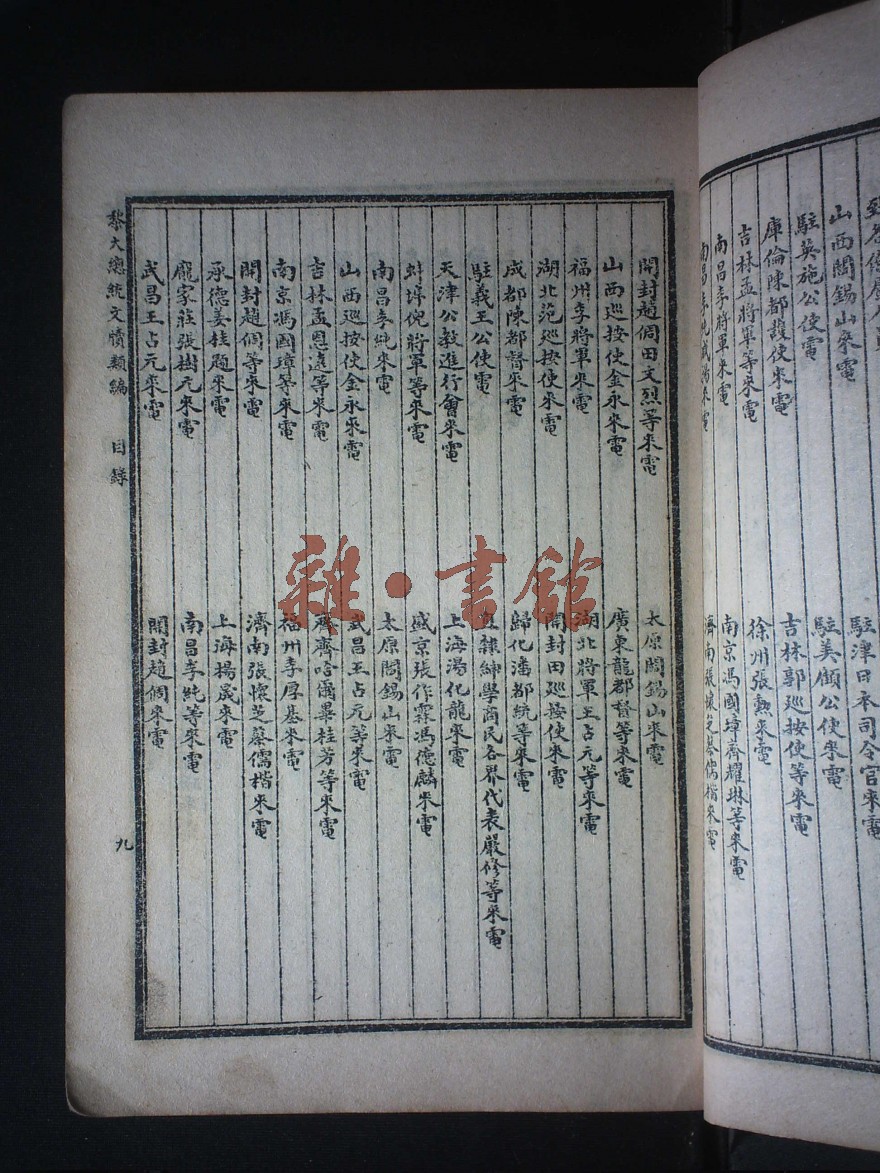 山西閻錫山來電
駐津日本司令官來電
駐英施公使電
駐美顧公使來電
庫倫陳都護使來電
吉林郭巡按使等來電
吉林孟將軍等來電
徐州張勳來電
南昌李將軍來電
南京馮國璋齊耀琳等來電
濟南張懷芝蔡儒楷來電
開封趙倜田文烈等來電
太原閻錫山來電
山西巡按使金永來電
廣東龍都督等來電
福州李將軍來電
湖北將軍王占元等來電
湖北范巡按使來電
開封田巡按使來電
成都陳都督來電
歸化潘都統等來電
駐義王公使電
直隸紳學商民各界代表嚴修等來電
天津公教進行會來電
上海湯化龍來電
蚌埠倪將軍等來電
盛京張作霖馮德麟來電
南昌李純來電
太原閻錫山來電
山西巡按使金永來電
武昌王占元等來電
吉林孟恩遠等來電
齊齊哈爾畢桂芳等來電
南京馮國璋等來電
福州李厚基來電
開封趙倜等來電
濟南張懷芝蔡儒楷來電
承德姜桂題來電
上海楊晟來電
龐家莊張樹元來電
南昌李純等來電
武昌王占元來電
開封趙倜來電
黎大總統文牘類編 目錄
九
雜·書館